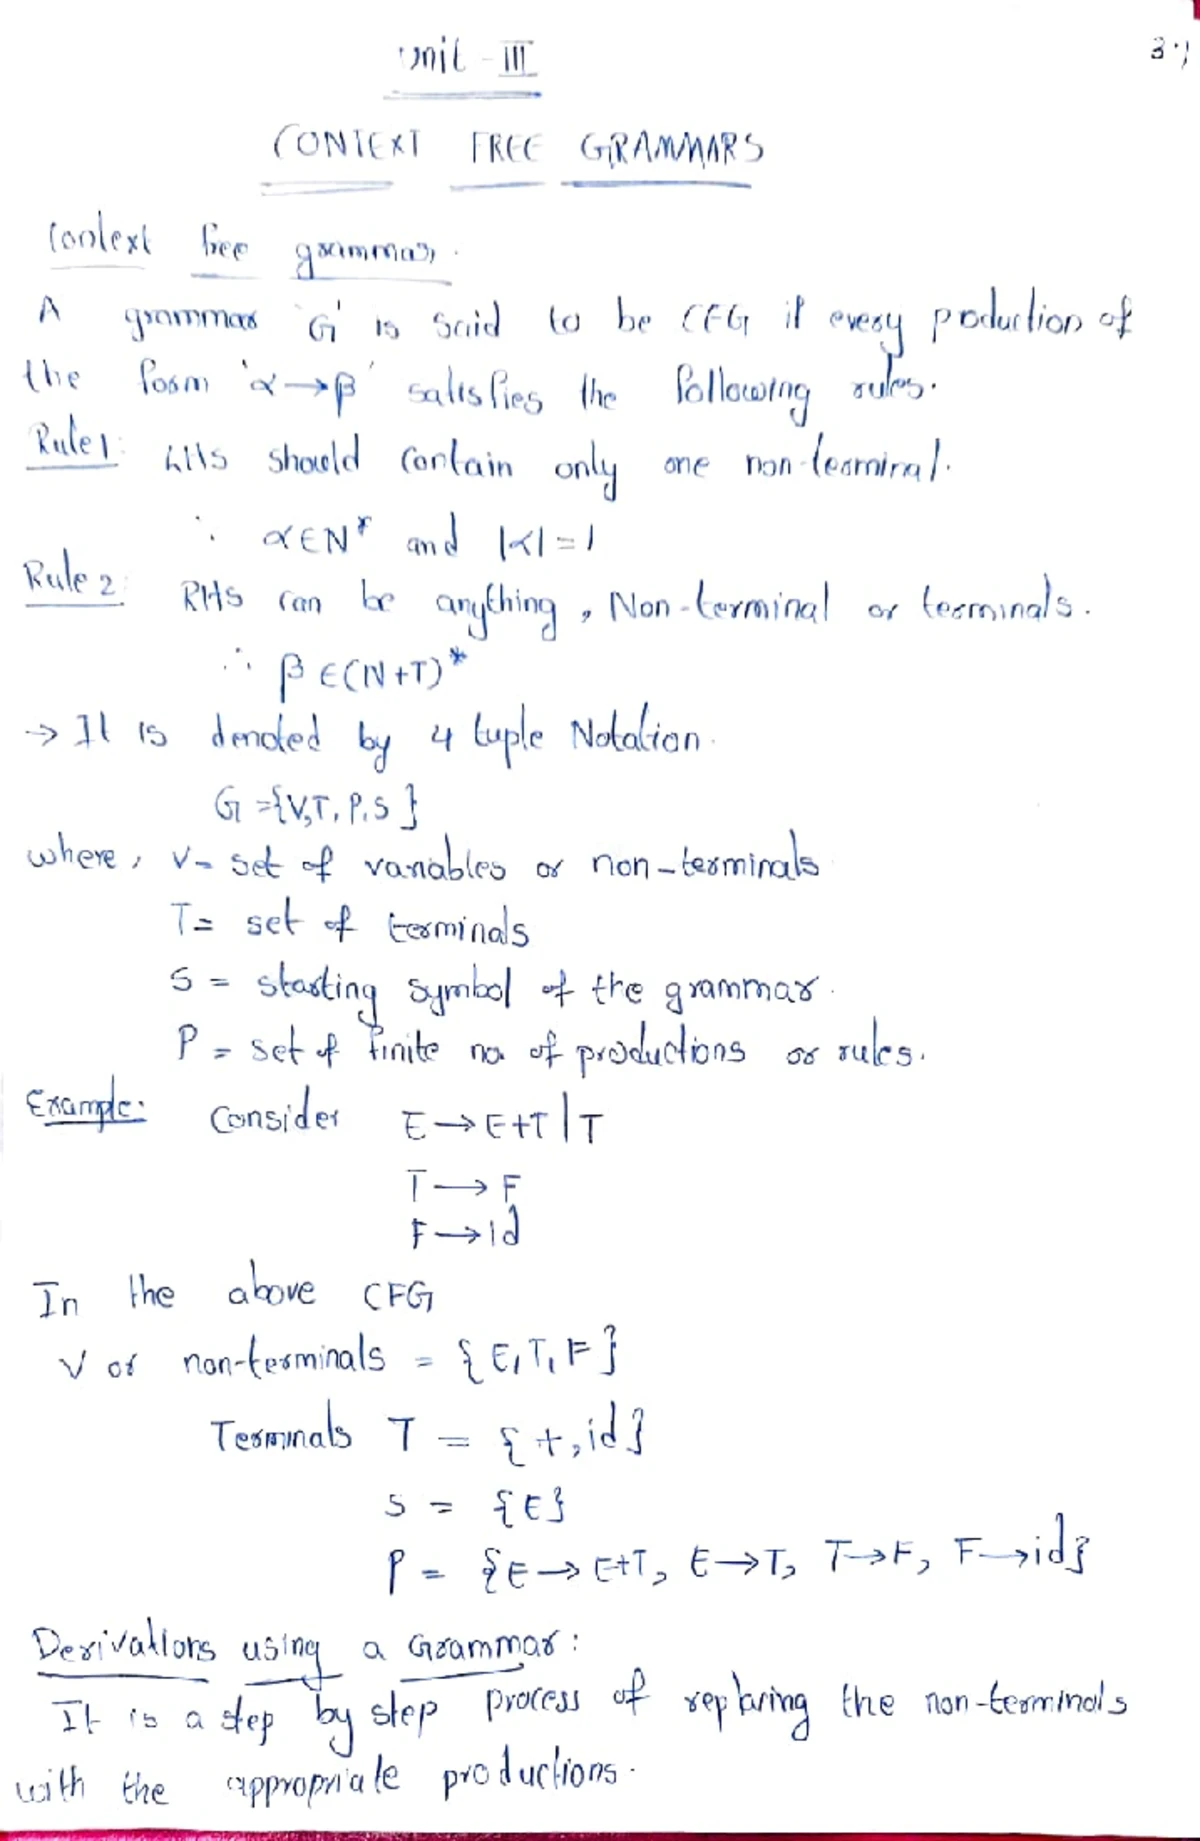 Unit - III
CONTEXT FREE GRAMMARS
Context free grammar.
A grammar 'G' is said to be CFG if every production of
the form 'α→β' satisfies the following rules.
Rule 1: LHS should contain only one non-terminal.
∴ α∈N* and |α|=1
Rule 2: RHS can be anything, Non-terminal or terminals.
∴ β∈(N+T)*
→ It is denoted by 4 tuple Notation.
G={V,T,P,S}
where, V- set of variables or non-terminals
T= set of terminals
S = starting symbol of the grammar.
P = set of finite no. of productions or rules.
Example: Consider E→E+T|T
T→F
F→id
In the above CFG
V or non-terminals = {E,T,F}
Terminals T = {+,id}
S = {E}
P = {E→E+T, E→T, T→F, F→id}
Derivations using a Grammar:
It is a step by step process of replacing the non-terminals
with the appropriate productions.